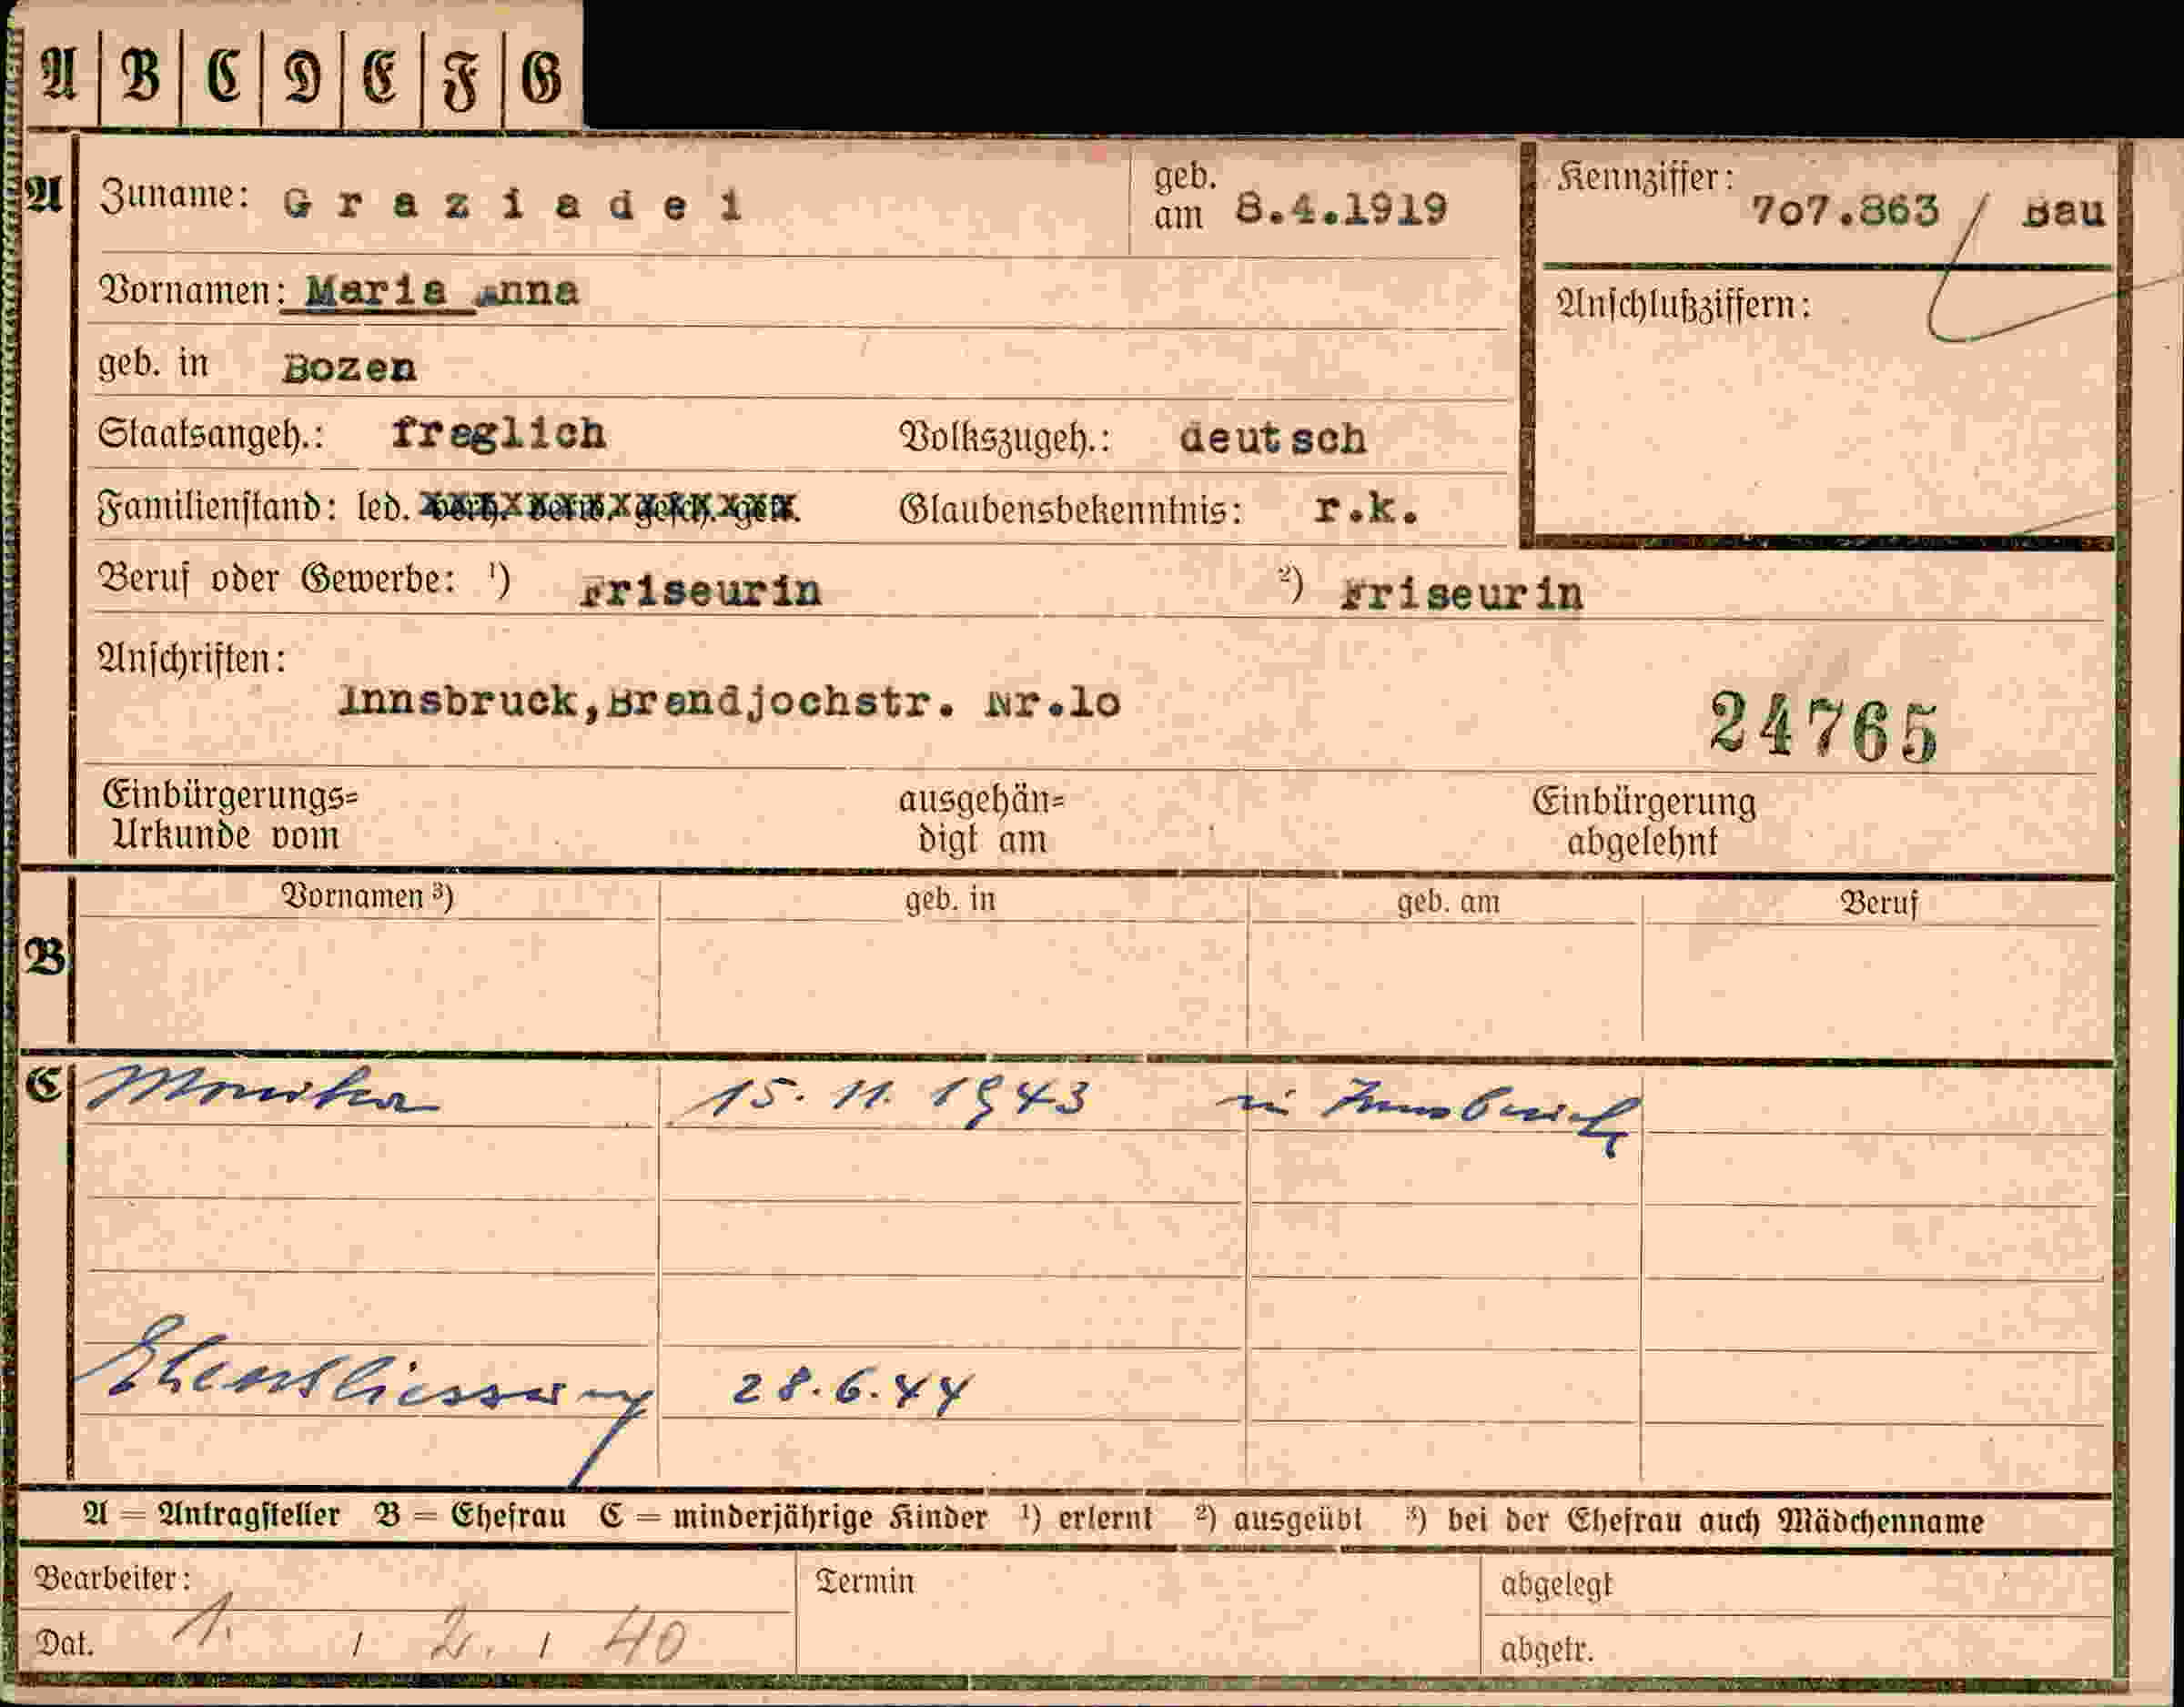 A B C D E F G
A Zuname: Graziadei geb. am 8.4.1919 Kennziffer: 707.863 / Bau
Vornamen: Maria Anna Anschlußziffern:
geb. in Bozen
Staatsangeh.: fraglich Volkszugeh.: deutsch
Familienstand: led. verh. verw. gesch. getr. Glaubensbekenntnis: r.k.
Beruf oder Gewerbe: ¹) Friseurin ²) Friseurin
Anschriften:
Innsbruck,Brandjochstr. Nr.10 24765
Einbürgerungs= ausgehän= Einbürgerung
Urkunde vom digt am abgelehnt
Vornamen ³) geb. in geb. am Beruf
B
C Monika 15. 11. 1943 in Innsbruck
Eheschliessung 28.6.44
A = Antragsteller B = Ehefrau C = minderjährige Kinder ¹) erlernt ²) ausgeübt ³) bei der Ehefrau auch Mädchenname
Bearbeiter: Termin abgelegt
Dat. 1. / 2. / 40 abgetr.